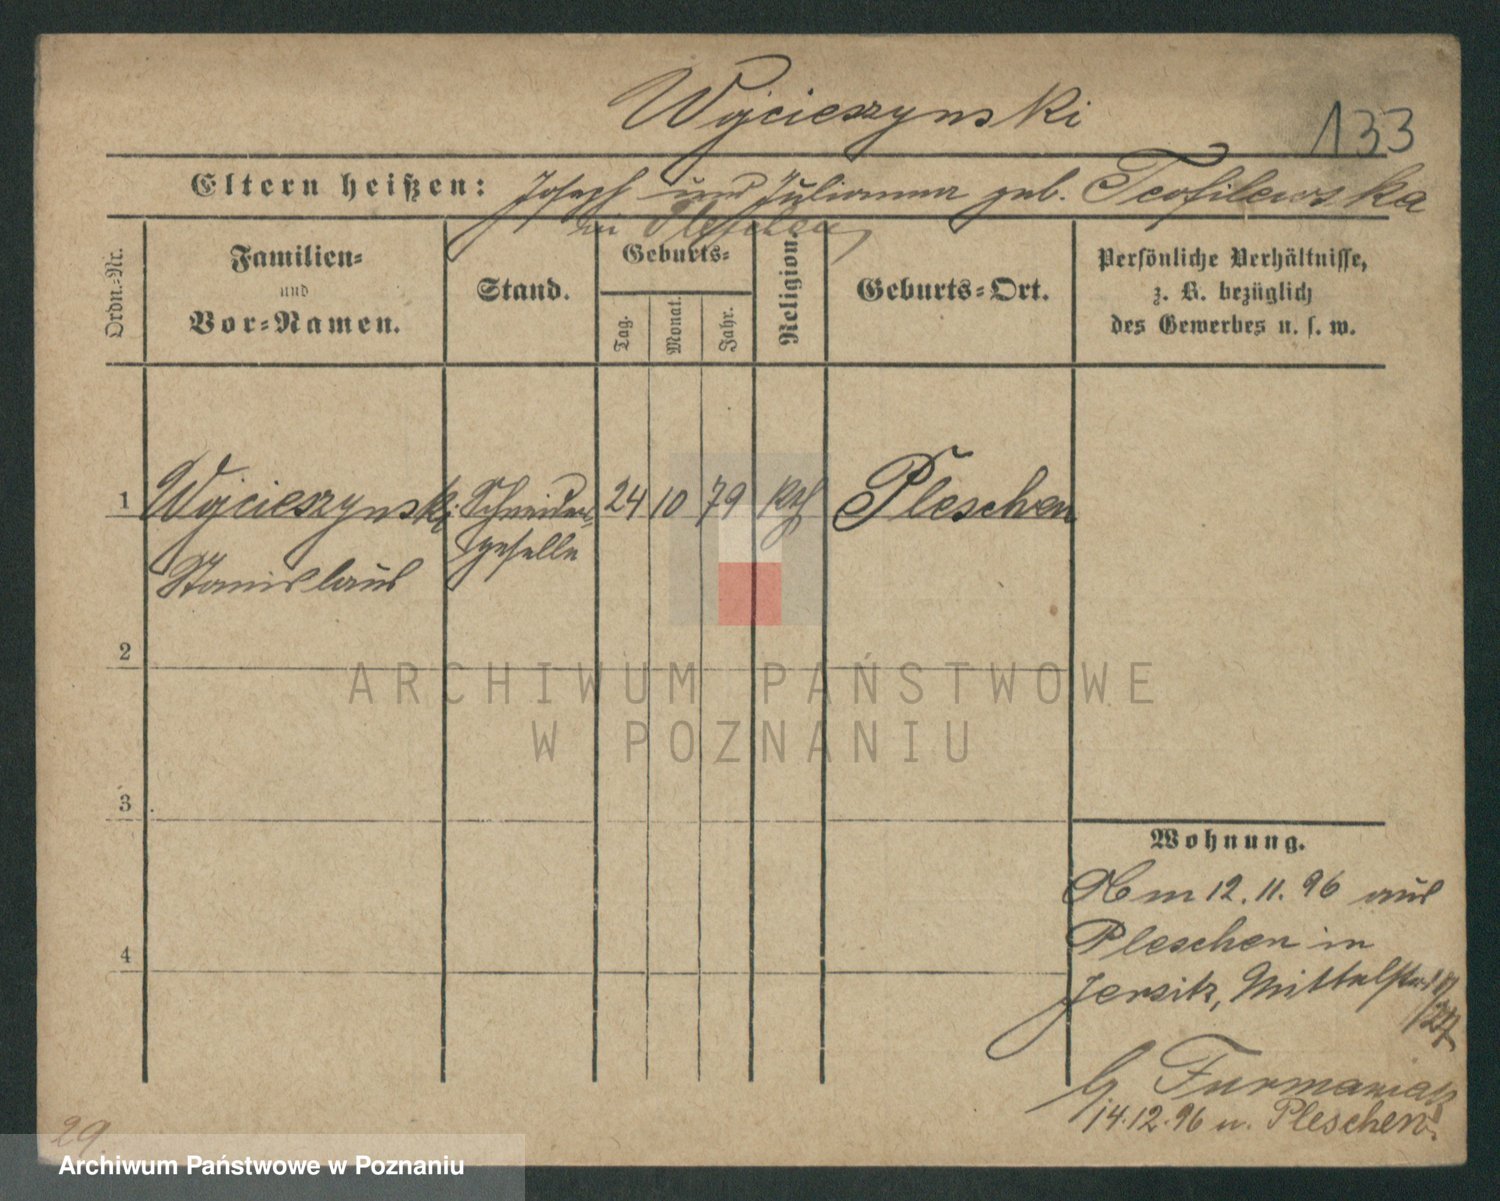 Wojcieszynski
133
Eltern heißen: Joseph und Julianna geb. Teofilewska
in Pleschen
Ordn.-Nr.
Familien-
und
Vor-Namen.
Stand.
Geburts-
Tag.
Monat.
Jahr.
Religion.
Geburts-Ort.
Persönliche Verhältnisse,
z. B. bezüglich
des Gewerbes u. s. w.
1 Wojcieszynski Schneider- 24 10 79 kth Pleschen
Stanislaus geselle
2
3
4
ARCHIWUM PAŃSTWOWE
W POZNANIU
Wohnung.
Am 12.11.96 aus
Pleschen in
Jersitz, Mittelstr.
b/ Furmaniak
14.12.96 n. Pleschen.
29.
Archiwum Państwowe w Poznaniu